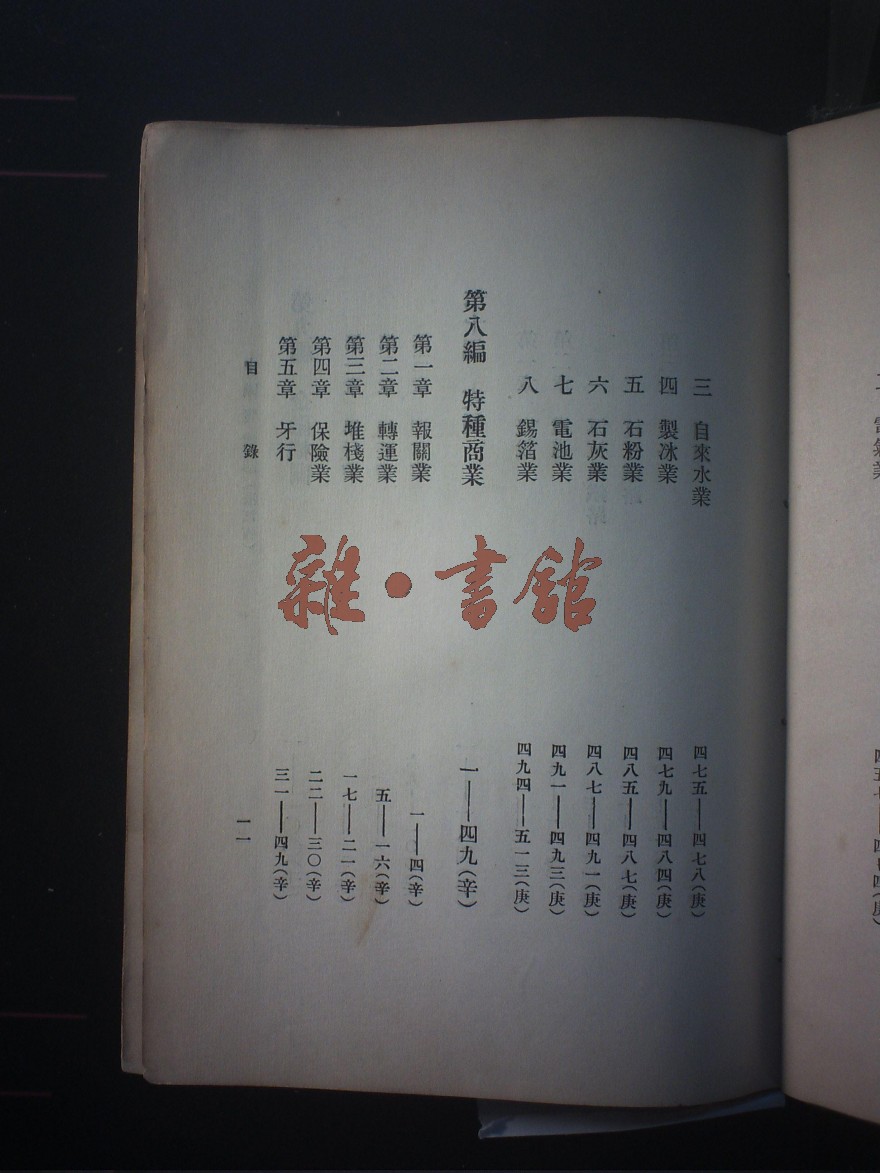 三 自來水業 四七五——四七八(庚)
四 製冰業 四七九——四八四(庚)
五 石粉業 四八五——四八七(庚)
六 石灰業 四八七——四九一(庚)
七 電池業 四九一——四九三(庚)
八 錫箔業 四九四——五一三(庚)
第八編 特種商業 一——四九(辛)
第一章 報關業 一——四(辛)
第二章 轉運業 五——一六(辛)
第三章 堆棧業 一七——二一(辛)
第四章 保險業 二二——三〇(辛)
第五章 牙行 三一——四九(辛)
目錄 一一
雜·書館